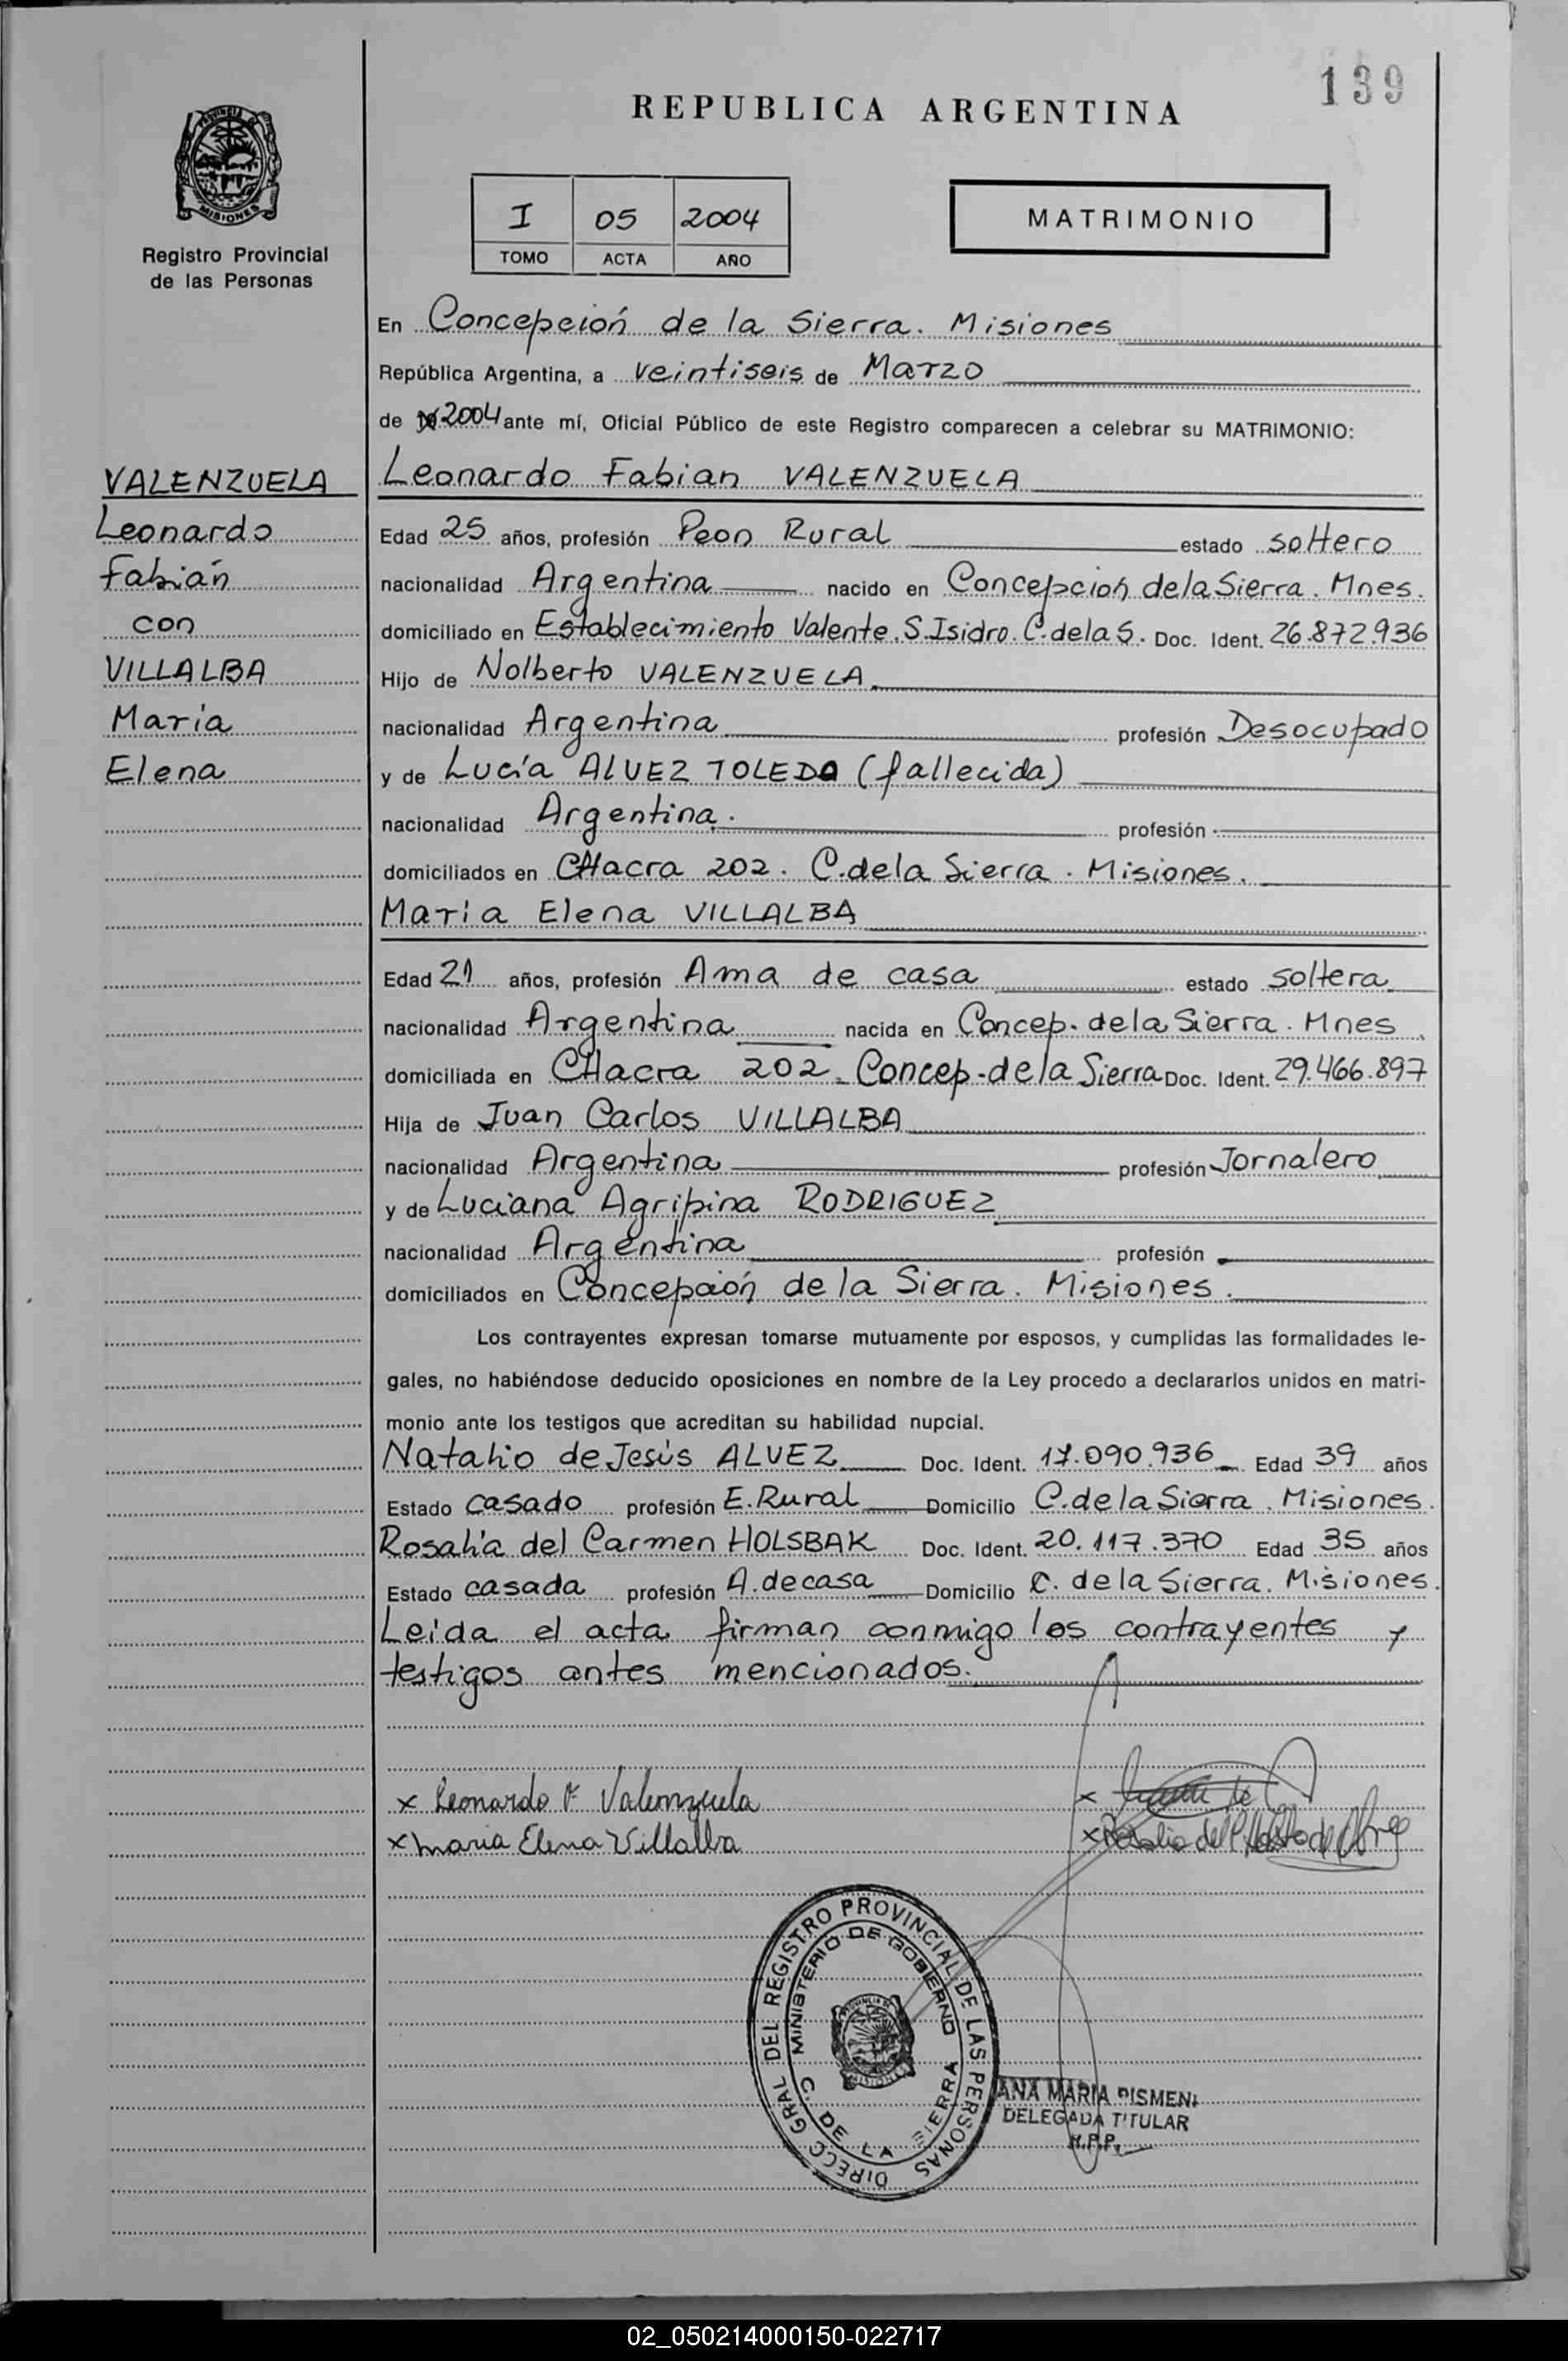 139
REPUBLICA ARGENTINA
MISIONES
Registro Provincial
de las Personas
I 05 2004
TOMO ACTA AÑO
MATRIMONIO
En Concepción de la Sierra. Misiones
República Argentina, a veintiseis de Marzo
de 2004 ante mí, Oficial Público de este Registro comparecen a celebrar su MATRIMONIO:
VALENZUELA
Leonardo
Fabián
con
VILLALBA
María
Elena
Leonardo Fabian VALENZUELA
Edad 25 años, profesión Peon Rural estado soltero
nacionalidad Argentina nacido en Concepción de la Sierra. Mnes.
domiciliado en Establecimiento Valente. S. Isidro. C. de la S. Doc. Ident. 26.872.936
Hijo de Nolberto VALENZUELA
nacionalidad Argentina profesión Desocupado
y de Lucía ALVEZ TOLEDO (fallecida)
nacionalidad Argentina. profesión
domiciliados en CHacra 202. C. de la Sierra. Misiones.
María Elena VILLALBA
Edad 21 años, profesión Ama de casa estado soltera
nacionalidad Argentina nacida en Concep. de la Sierra. Mnes.
domiciliada en CHacra 202. Concep. de la Sierra Doc. Ident. 29.466.897
Hija de Juan Carlos VILLALBA
nacionalidad Argentina profesión Jornalero
y de Luciana Agripina RODRIGUEZ
nacionalidad Argentina profesión
domiciliados en Concepción de la Sierra. Misiones.
Los contrayentes expresan tomarse mutuamente por esposos, y cumplidas las formalidades le-
gales, no habiéndose deducido oposiciones en nombre de la Ley procedo a declararlos unidos en matri-
monio ante los testigos que acreditan su habilidad nupcial.
Natalio de Jesús ALVEZ Doc. Ident. 17.090.936 Edad 39 años
Estado casado profesión E. Rural Domicilio C. de la Sierra. Misiones.
Rosalía del Carmen HOLSBAK Doc. Ident. 20.117.370 Edad 35 años
Estado casada profesión A. de casa Domicilio C. de la Sierra. Misiones.
Leída el acta firman conmigo los contrayentes y
testigos antes mencionados.
x Leonardo F Valenzuela x
x Maria Elena Villalba x Rosalia del
DIRECC GRAL DEL REGISTRO PROVINCIAL DE LAS PERSONAS
MINISTERIO DE GOBIERNO
C. DE LA SIERRA
ANA MARIA
DELEGADA TITULAR
02_050214000150-022717